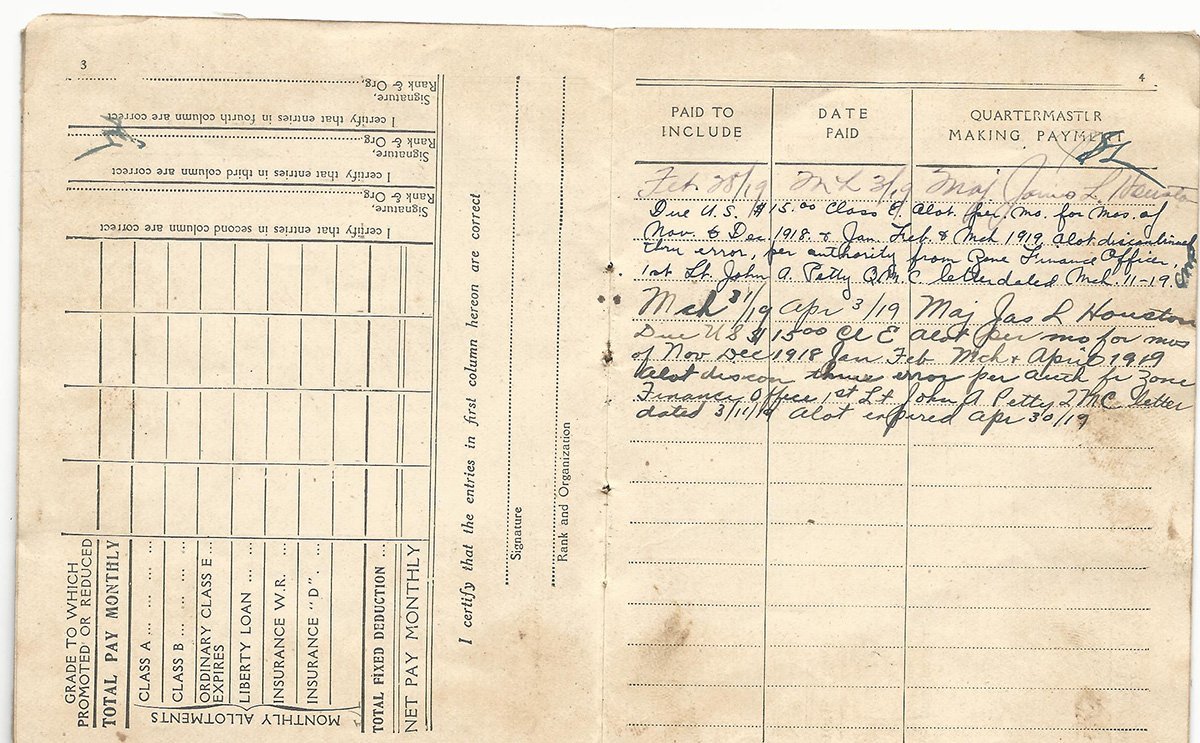 3
GRADE TO WHICH
PROMOTED OR REDUCED
TOTAL PAY MONTHLY
MONTHLY ALLOTMENTS
CLASS A ... ... ... ...
CLASS B ... ... ... ...
ORDINARY CLASS E ...
EXPIRES
LIBERTY LOAN ... ...
INSURANCE W.R. ...
INSURANCE "D". ...
TOTAL FIXED DEDUCTION ...
NET PAY MONTHLY
I certify that the entries in first column hereon are correct
Signature
Rank and Organization
I certify that entries in second column are correct
Signature,
Rank & Org.
I certify that entries in third column are correct
Signature,
Rank & Org.
I certify that entries in fourth column are correct
Signature,
Rank & Org.
4
PAID TO
INCLUDE
DATE
PAID
QUARTERMASTER
MAKING PAYMENT
Feb 28/19 Mch 3/19 Maj James L. Houston
Due U.S. $15.00 Class E. Alot. per. mo. for mos. of
Nov. & Dec 1918. & Jan. Feb. & Mch 1919. Alot. discontinued
thru error, per authority from Zone Finance Officer,
1st Lt. John A. Petty Q.M.C. letter dated Mch. 11-19.
Mch 31/19 Apr 3/19 Maj Jas L Houston
Due U S $15.00 Cl E alot per mo for mos
of Nov Dec 1918 Jan Feb Mch & April 1919
Alot discon thru error per auth fr Zone
Finance Office 1st Lt John A Petty QMC letter
dated 3/11/19 Alot expired Apr 30/19